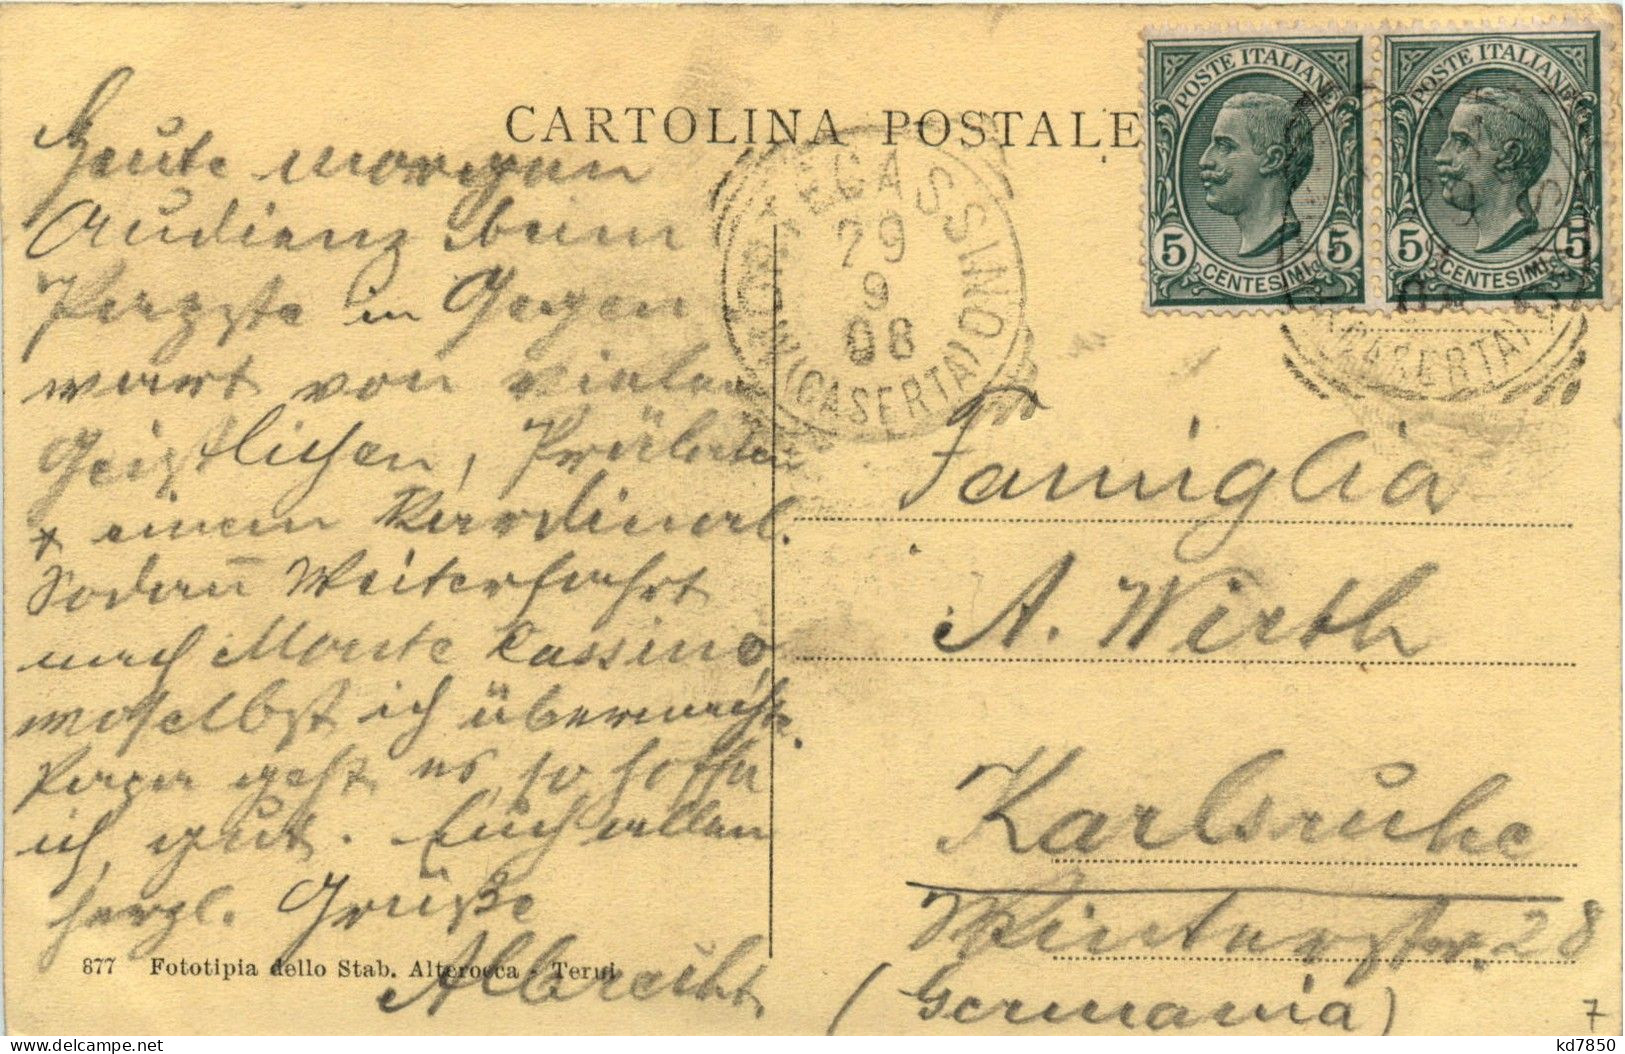 CARTOLINA POSTALE
POSTE ITALIANE
5 CENTESIMI 5
POSTE ITALIANE
5 CENTESIMI 5
MONTECASSINO
29
9
08
(CASERTA)
(CASERTA)
Heute morgen
Audienz beim
Papste in Gegen
wart von vielen
Geistlichen, Prälaten
+ einem Kardinal.
Sodañ Weiterfahrt
nach Monte Cassino,
woselbst ich übernachte.
Papa geht es, so hoffe
ich, gut. Euch allen
herzl. Grüße
Albrecht.
Famiglia
A. Wirth
Karlsruhe
Winterstr. 28
(Germania)
877 Fototipia dello Stab. Alterocca - Terni
7
kd7850